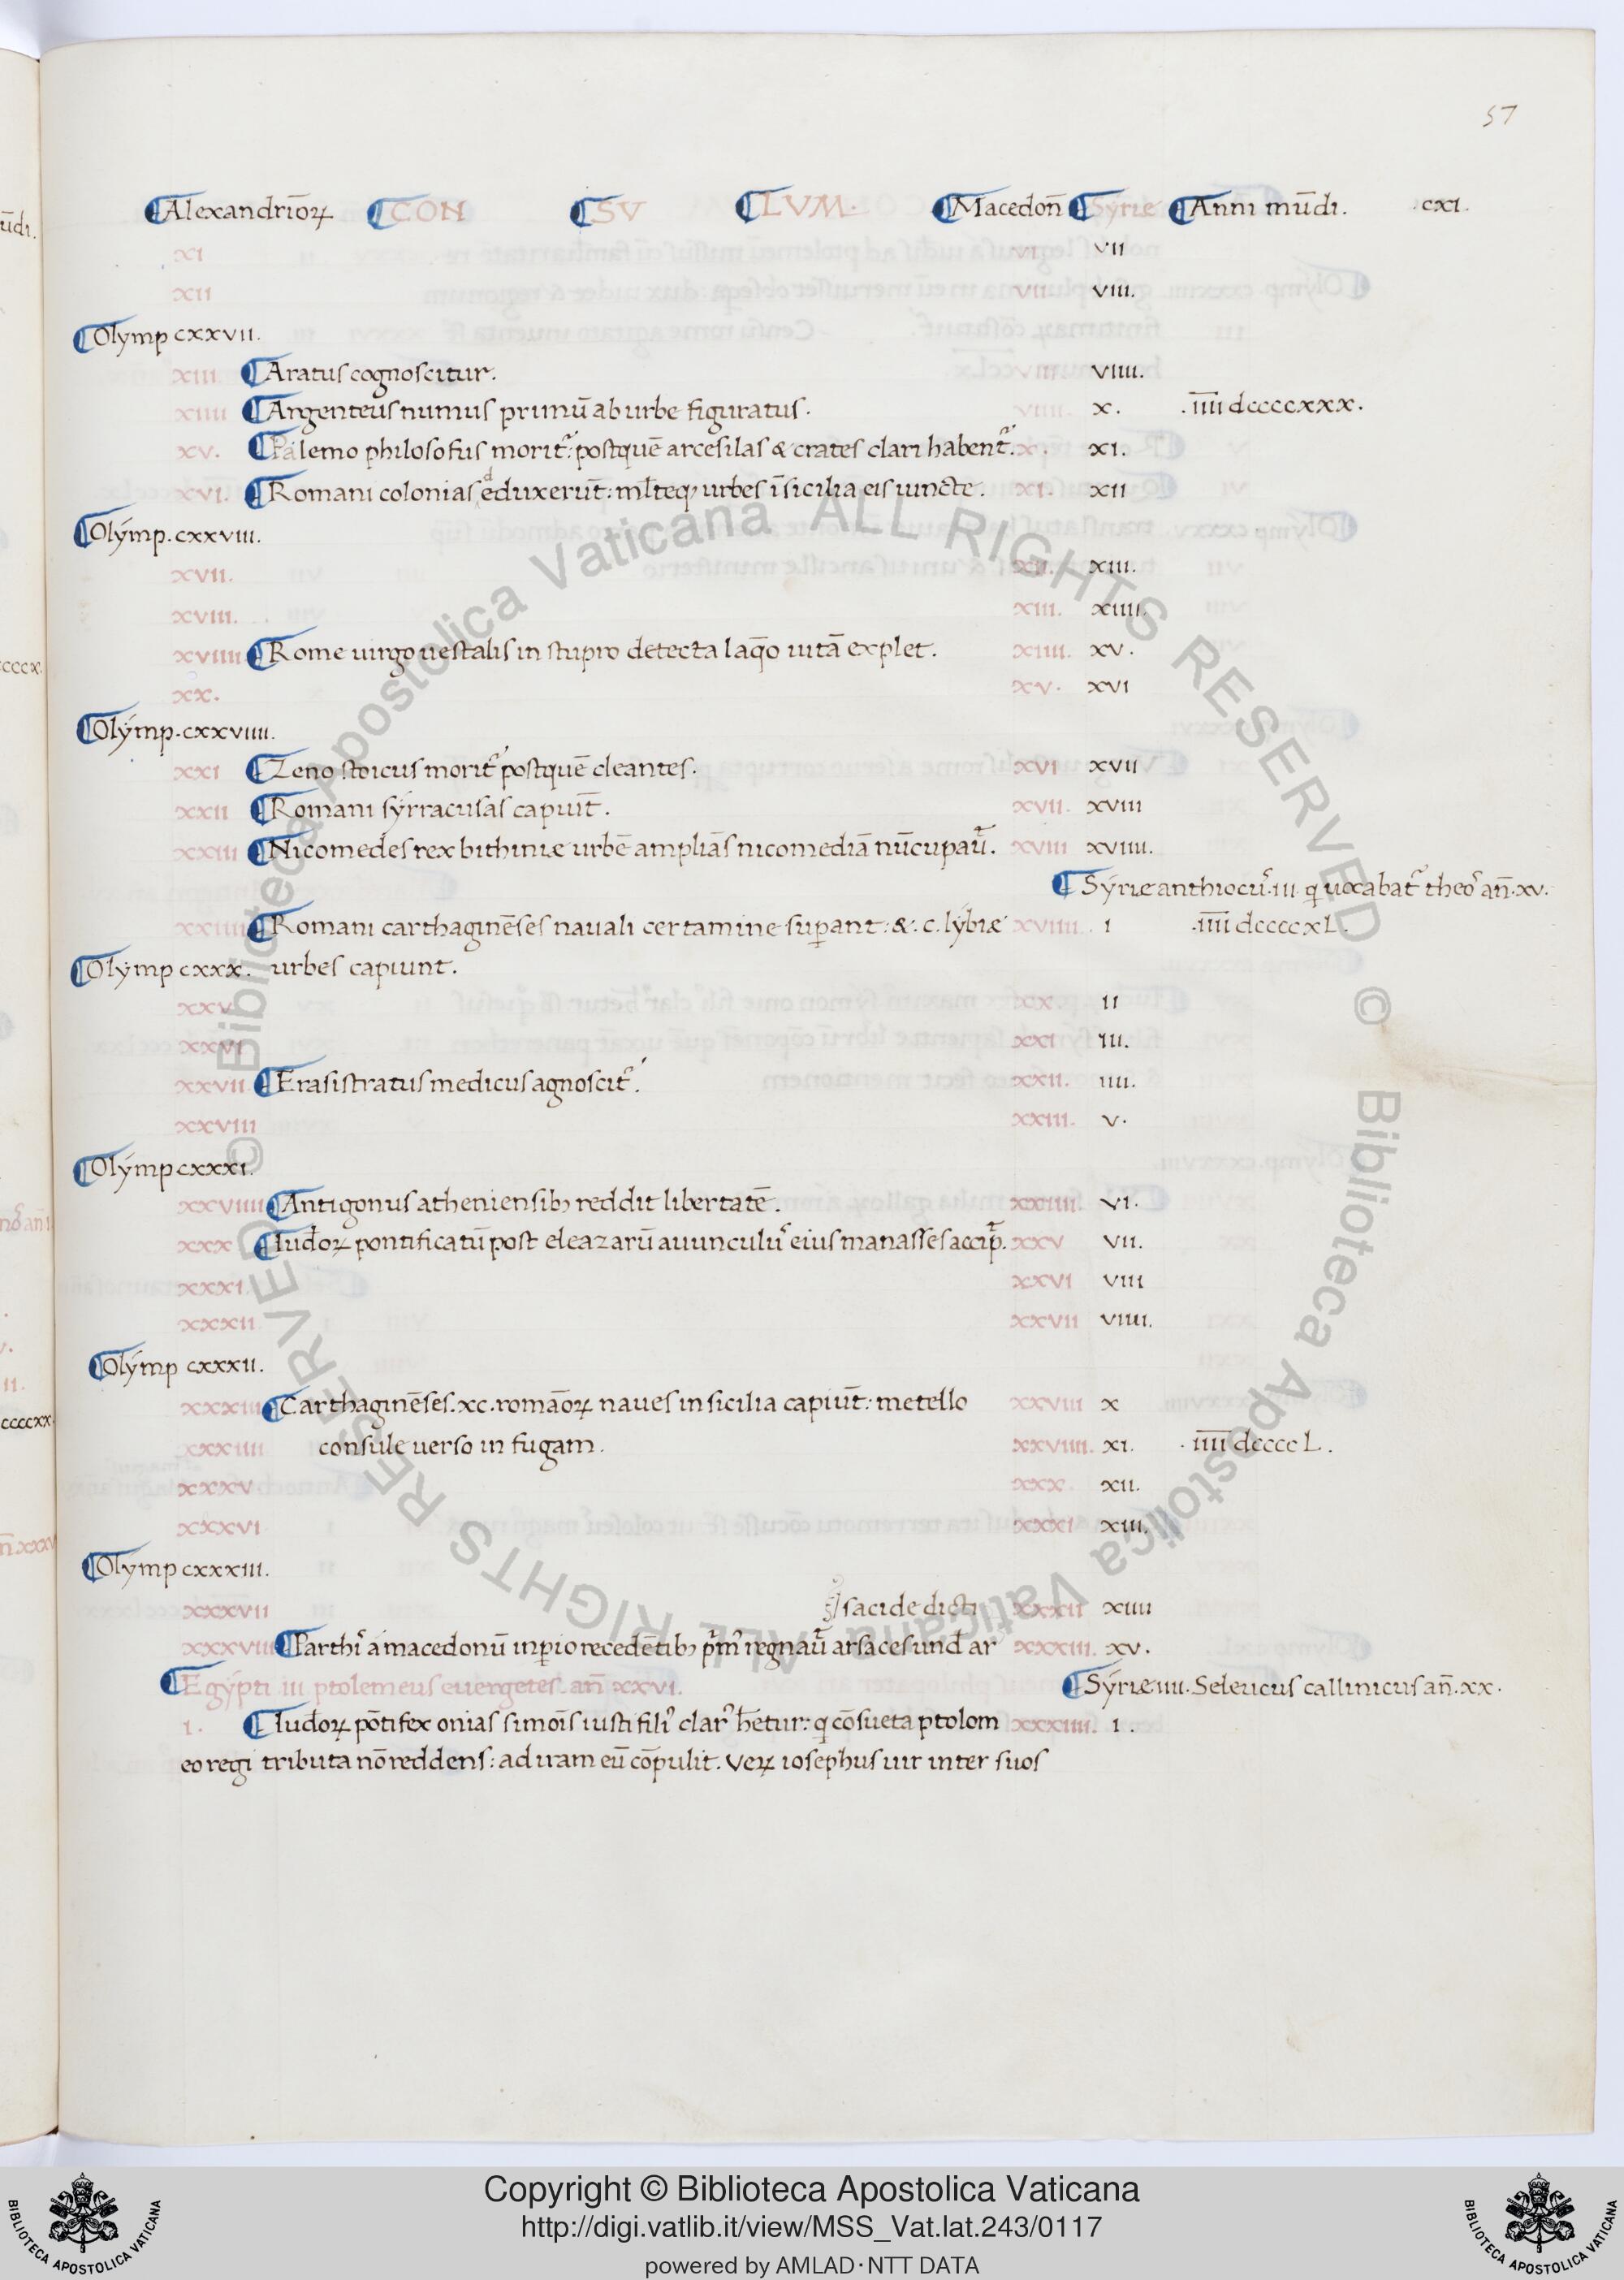 57
Alexandrioꝝ̄ CON SV LVM. Macedon̄ Syrie Anni mūdi. cxi.
xi vi vii
xii vii viii.
Olymp cxxvii.
xiii Aratus cognoscitur. viii viiii.
xiiii Argenteus numus primū ab urbe figuratus. viiii. x. .iiii dccccxxx.
xv. Palemo philosofus morit᷑: postquē arcesilas & crates clari habent᷑. x. xi.
xvi. Romani colonias eduxerūt: ml̄teqꝫ urbes ī sicilia eis iuncte. xi. xii
Olymp. cxxviii.
xvii. xii. xiii.
xviii. xiii. xiiii.
xviiii Rome uirgo uestalis in stupro detecta laq̄o uitā explet. xiiii. xv.
xx. xv. xvi
Olymp. cxxviiii.
xxi Zeno stoicus morit᷑ postquē cleantes. xvi xvii
xxii Romani syrracusas capiūt. xvii. xviii
xxiii Nicomedes rex bithiniæ urbē ampliās nicomediā nūcupau̅. xviii xviiii.
Syrie anthiocu᷒. iii q uocabat᷑ theo᷒ an̄. xv.
xxiiii Romani carthaginēses nauali certamine suꝑant: &. c. lybiæ xviiii. i .iiii dccccxL.
Olymp cxxx. urbes capiunt.
xxv xx. ii
xxvi xxi iii.
xxvii Erasistratus medicus agnoscit᷑. xxii. iiii.
xxviii xxiii. v.
Olymp cxxxi.
xxviiii Antigonus atheniensibꝫ reddit libertatē. xxiiii. vi.
xxx Iud̄oꝝ pontificatū post eleazarū auunculu᷒ eius manasses accip̄. xxv vii.
xxxi. xxvi viii
xxxii xxvii viiii.
Olymp cxxxii.
xxxiii Carthaginēses. xc. romāoꝝ naues in sicilia capiūt: metello xxviii x
xxxiiii consule uerso in fugam. xxviiii. xi. .iiii dccccL.
xxxv xxx. xii.
xxxvi xxxi xiii.
Olymp cxxxiii.
xxxvii sacide dicti xxxii xiiii
xxxviii Parthi᷒ a macedonū inꝑio recedētibꝫ p̄m᷒ regnau̅ arsaces und̄ ar xxxiii. xv.
Egypti iii ptolemeus euergetes. an̄ xxvi. Syrie. iiii. Seleucus callinicus an̄. xx.
i. Iud̄oꝝ pōtifex onias simoīs iusti fili᷒ clar᷒ h̄etur: q cōsueta ptolom xxxiiii. i.
eo regi tributa nō reddens: ad iram eū cōpulit. Veꝝ iosephus uir inter suos
Biblioteca Apostolica Vaticana ALL RIGHTS RESERVED ©
Biblioteca Apostolica Vaticana ALL RIGHTS RESERVED ©
Copyright © Biblioteca Apostolica Vaticana
http://digi.vatlib.it/view/MSS_Vat.lat.243/0117
powered by AMLAD·NTT DATA
BIBLIOTECA APOSTOLICA VATICANA
BIBLIOTECA APOSTOLICA VATICANA